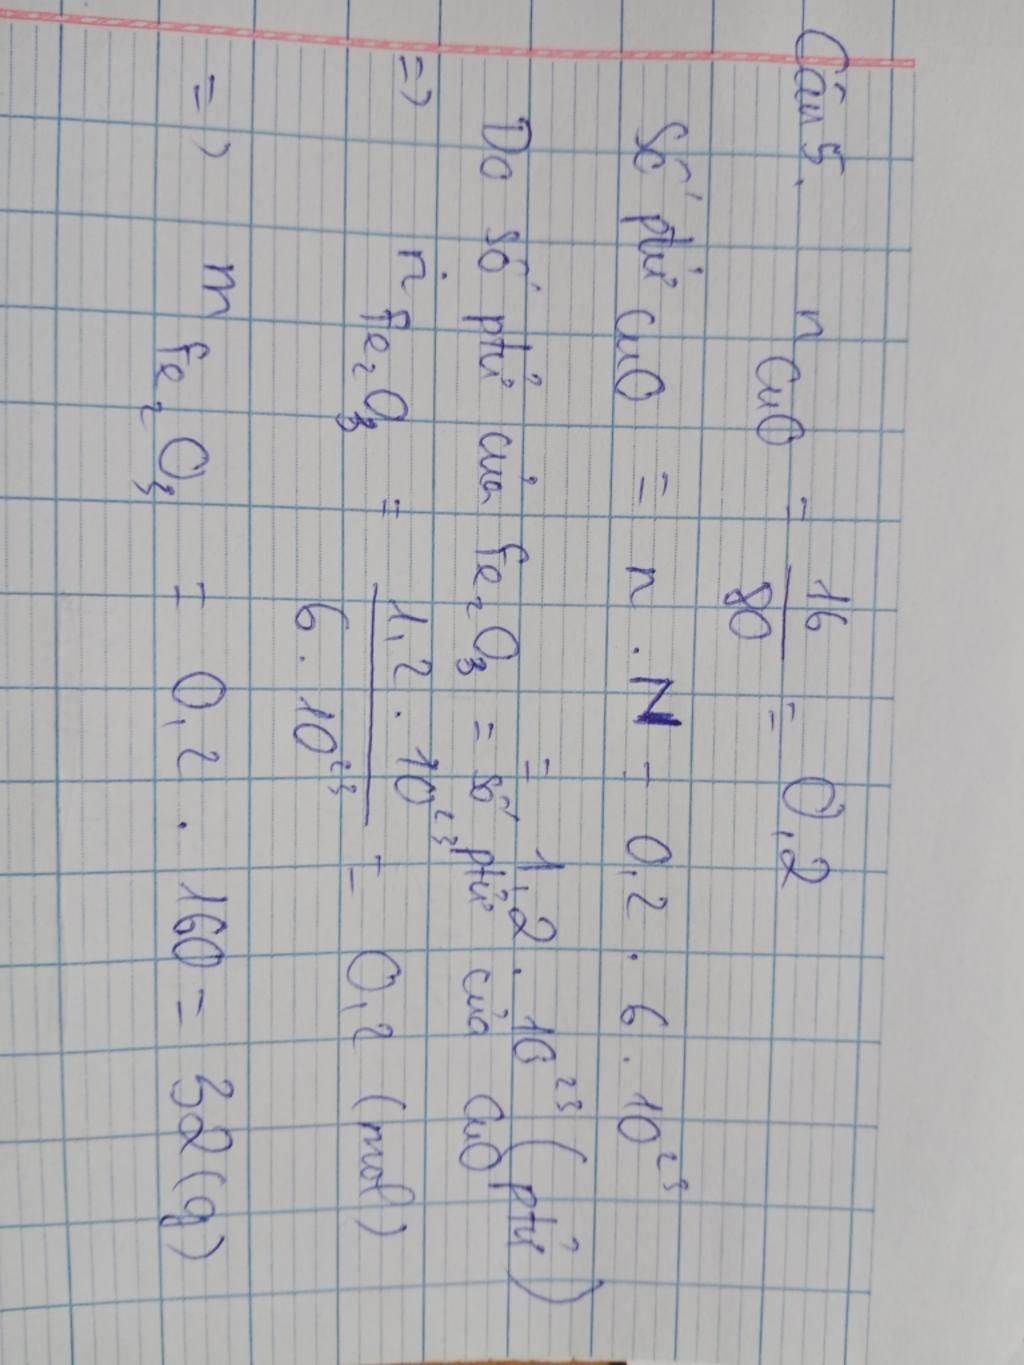 Câu 5. n CuO = 16/80 = 0,2
Số ptử CuO = n . N = 0,2 . 6 . 10²³
= 1,2 . 10²³ (ptử)
Do số ptử của Fe₂O₃ = số ptử của CuO
=> n Fe₂O₃ = 1,2 . 10²³ / 6 . 10²³ = 0,2 (mol)
=> m Fe₂O₃ = 0,2 . 160 = 32 (g)